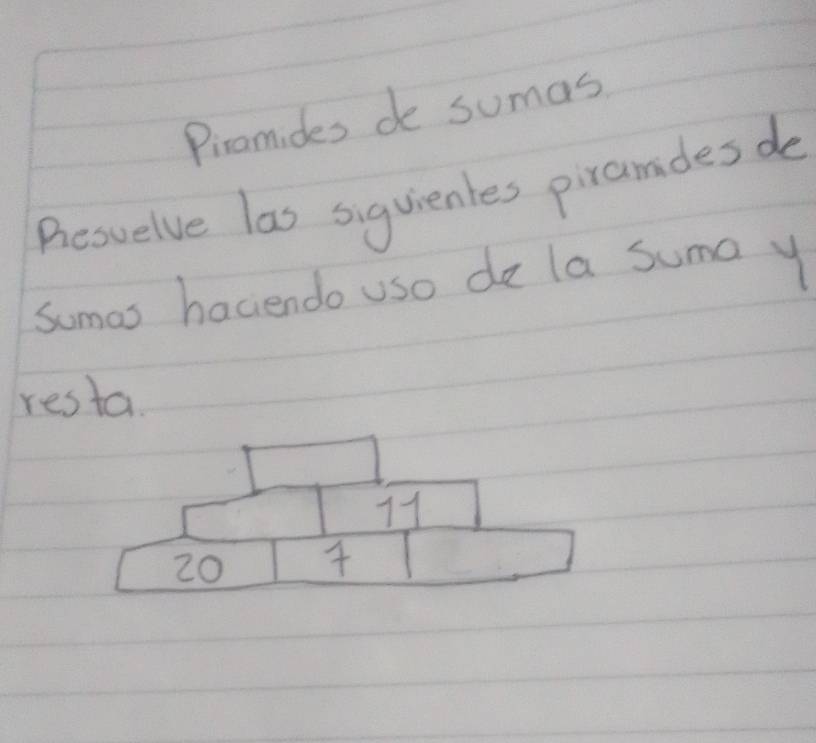 Piramides de sumas
Resuelve las siguientes piramides de
sumas haciendo uso de la suma y
resta.
11
20 7